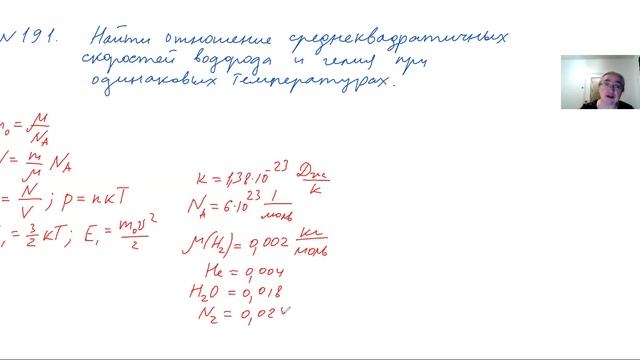 N 191. Найти отношение среднеквадратичных
скоростей водорода и гелия при
одинаковых температурах.
m₀ = μ/N_A
N = m/μ N_A
= N/V ; p = nкT
E₁ = 3/2 кT; E₁ = m₀v²/2
к = 1,38·10⁻²³ Дж/К
N_A = 6·10²³ 1/моль
μ(H₂) = 0,002 кг/моль
He = 0,004
H₂O = 0,018
N₂ = 0,02